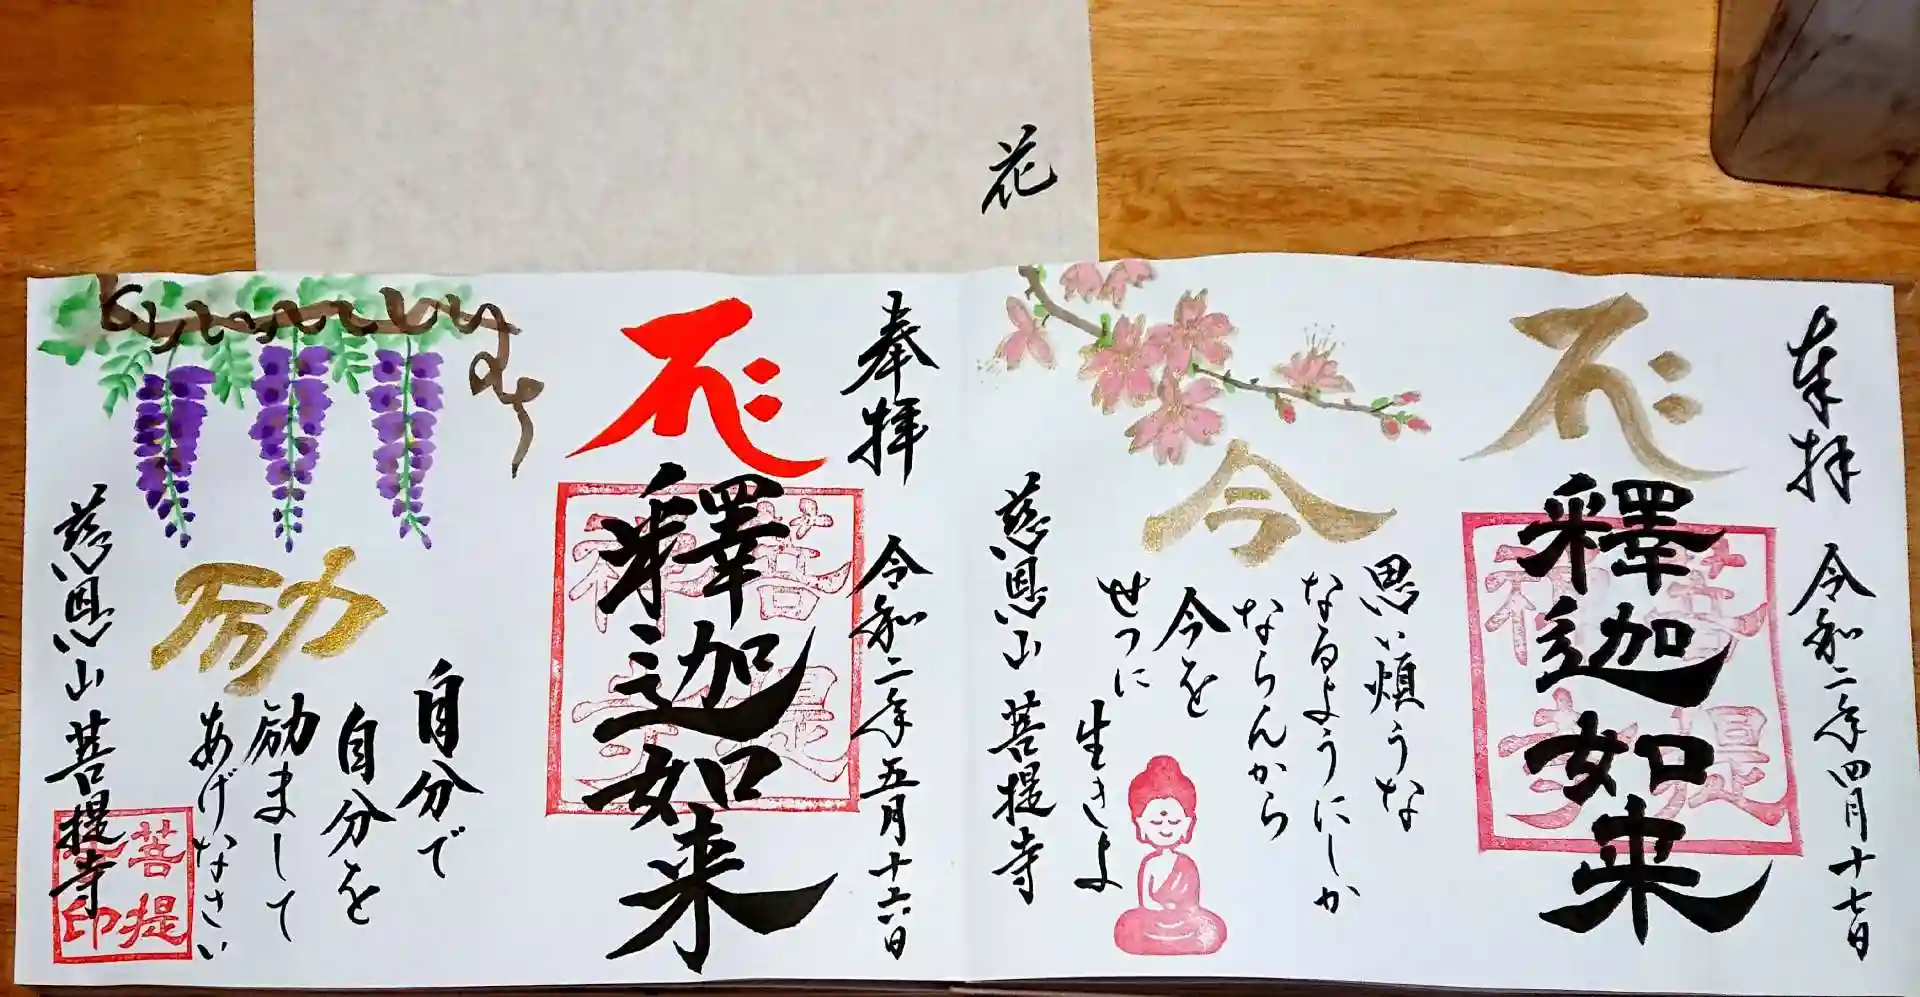 花
奉拝
令和二年四月十七日
釋迦如来
今
思い煩うな
なるようにしか
ならんから
今を
せつに
生きよ
慈恩山 菩提寺
奉拝
令和二年五月十六日
釋迦如来
励
自分で
自分を
励まして
あげなさい
慈恩山 菩提寺
菩提
印